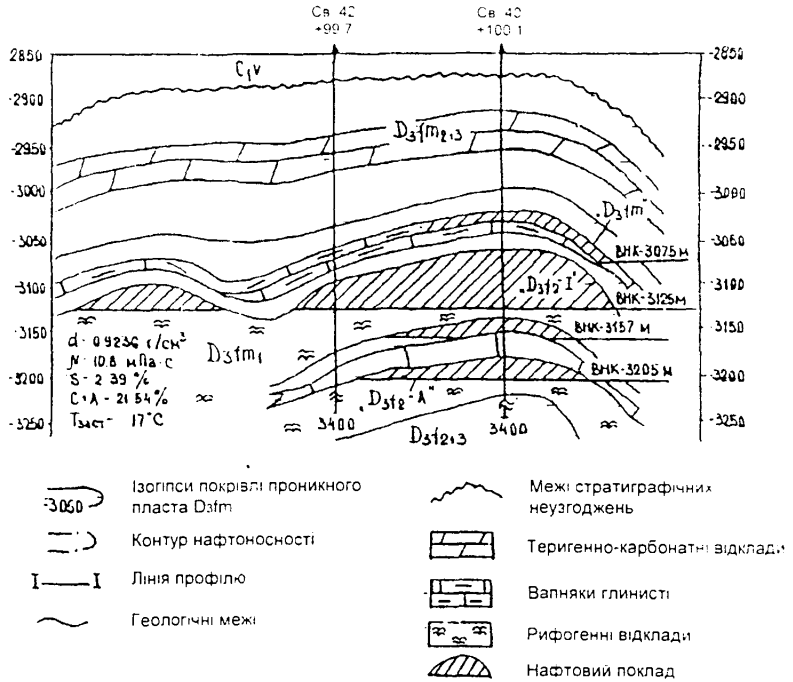 Св. 42
+99.7
Св. 40
+100.1
-2850
-2900
-2950
-3000
-3050
-3100
-3150
-3200
-3250
-2850
-2900
-2950
-3000
-3050
-3100
-3150
-3200
-3250
C₁v
D₃fm₂₊₃
„D₃fm"
ВНК-3075м
„D₃f₂-I"
ВНК-3125м
ВНК-3157 м
D₃fm₁
ВНК-3205м
„D₃f₂-А"
d - 0.9236 г/см³
N - 10.8 мПа·с
S - 2.39 %
C+A - 21.54%
Tзаст - 17°С
3400
3400
D₃f₂₊₃
-3060
Ізогіпси покрівлі проникного
пласта D₃fm
Контур нафтоносності
I I Лінія профілю
Геологічні межі
Межі стратиграфічних
неузгоджень
Теригенно-карбонатні відклади
Вапняки глинисті
Рифогенні відклади
Нафтовий поклад